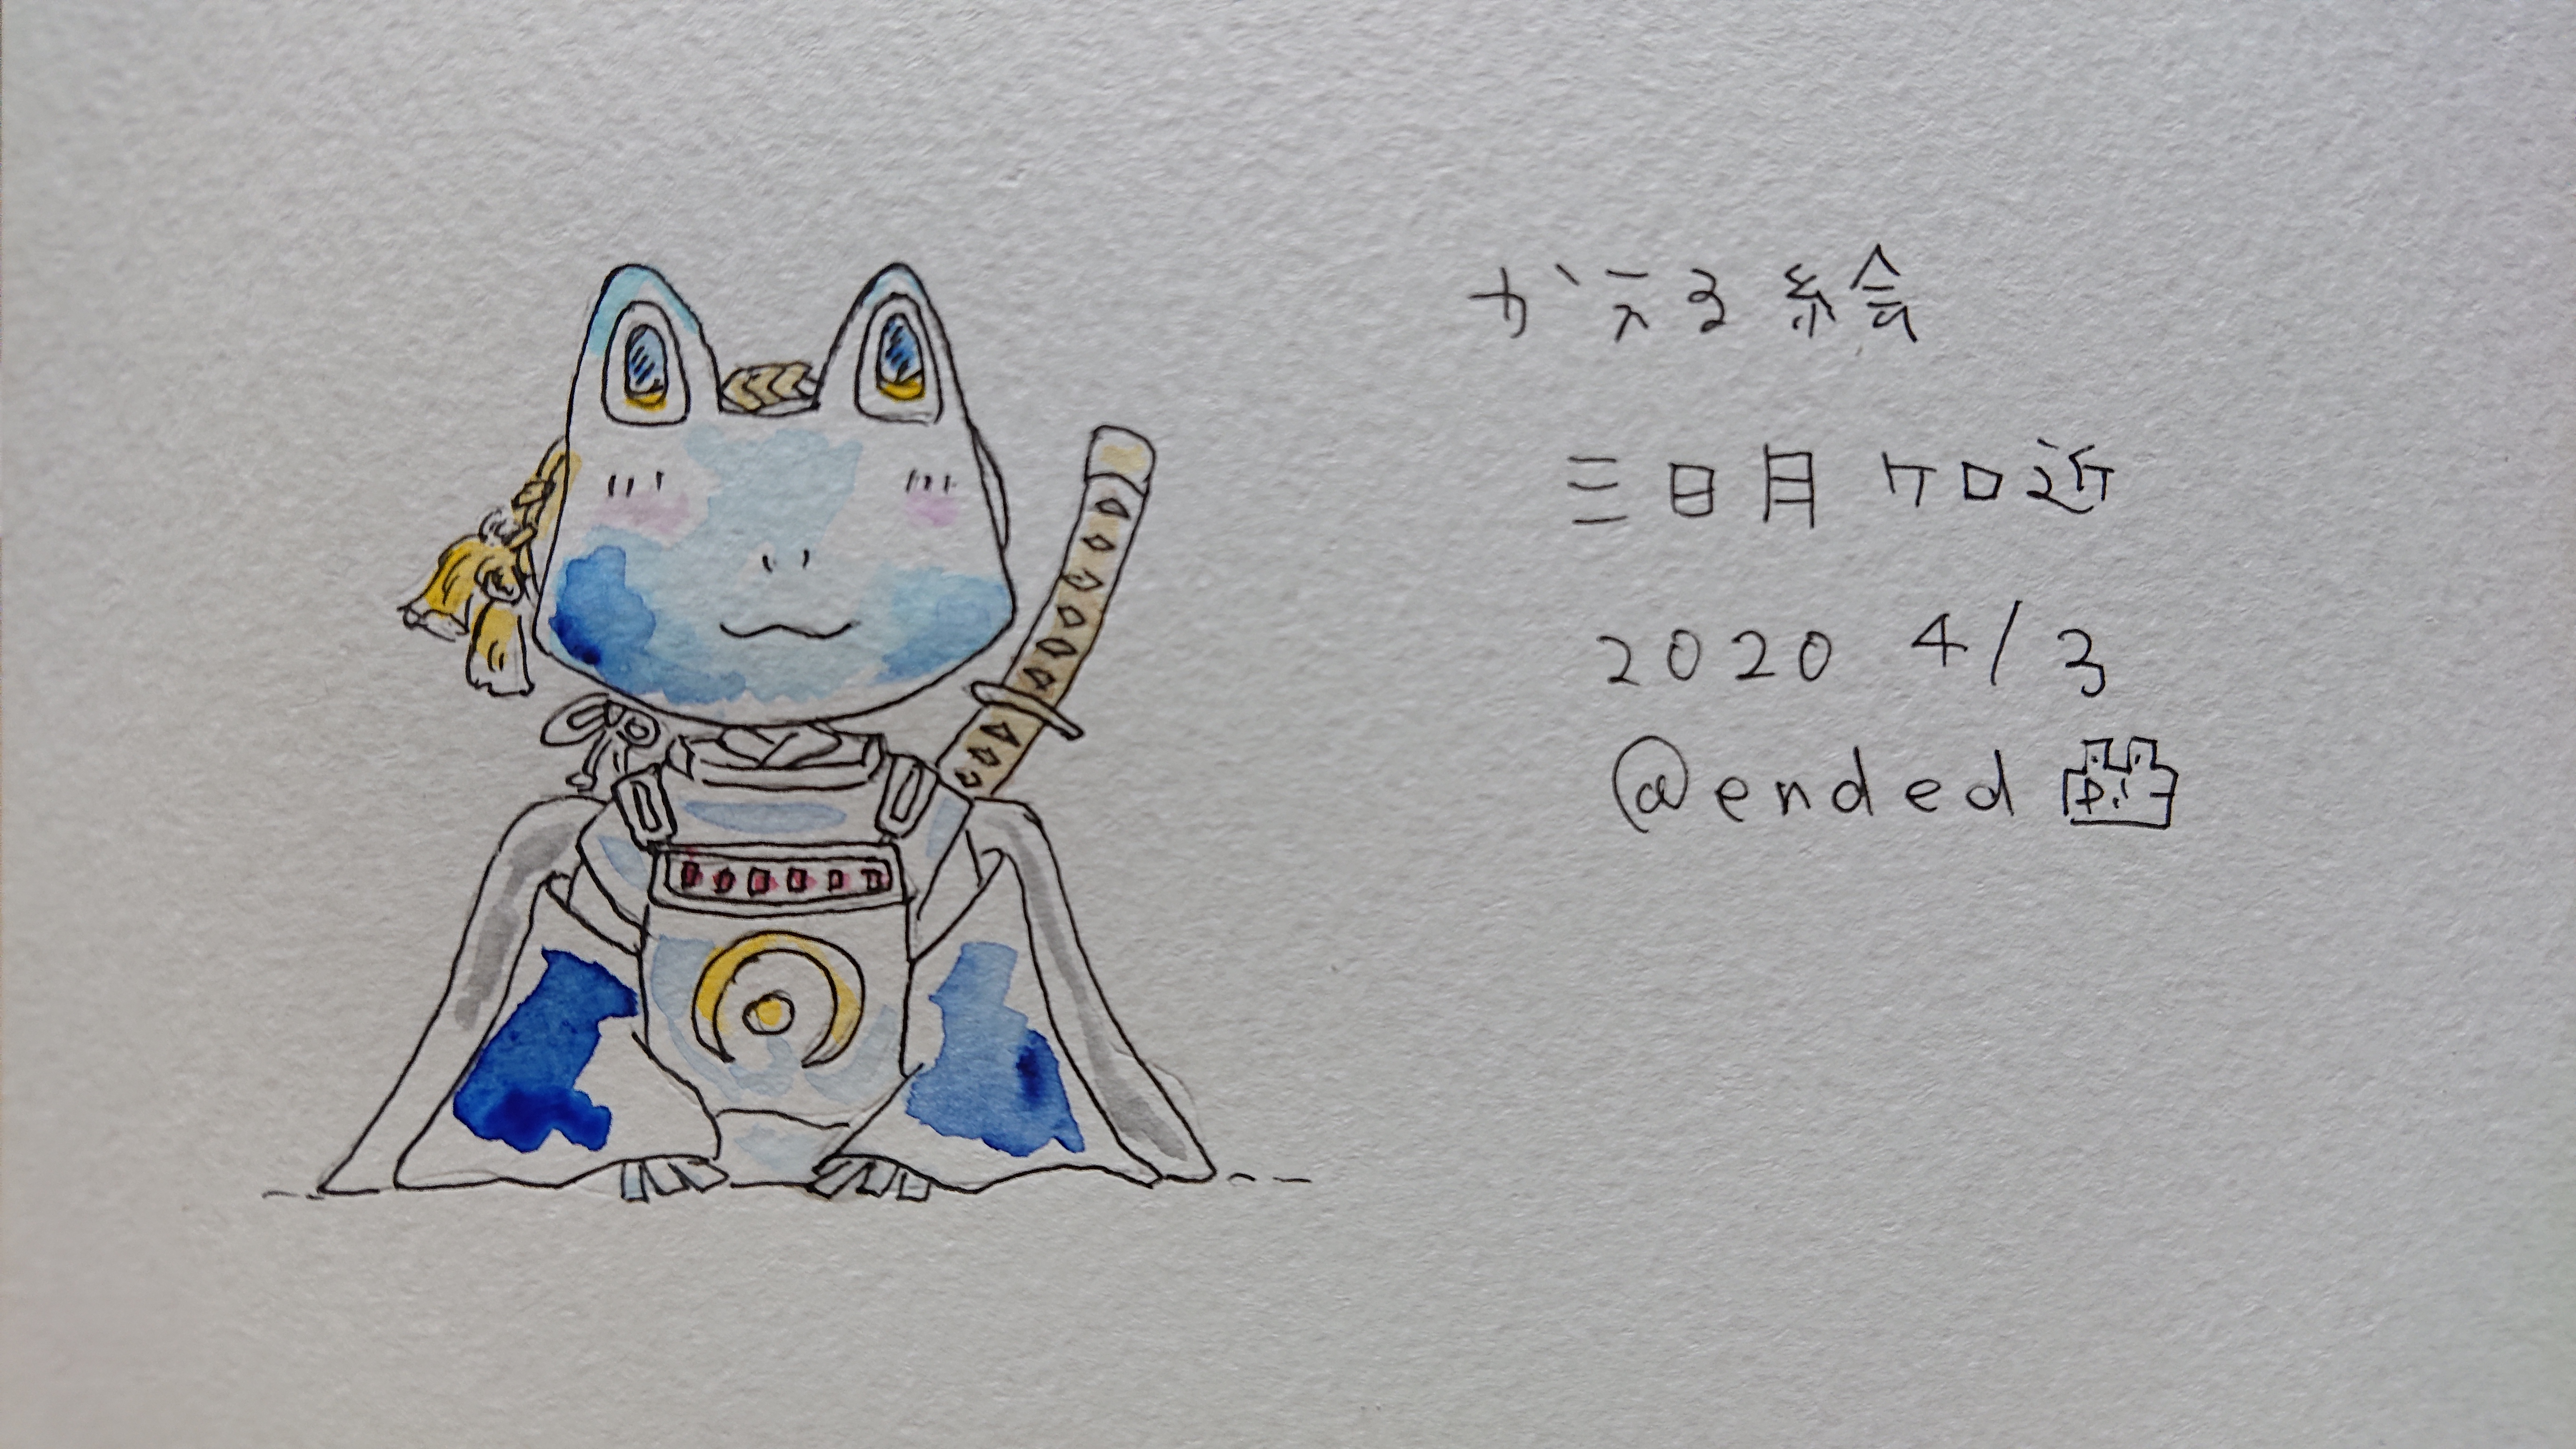 かえる絵
三日月ケロ近
2020 4/3
@ended